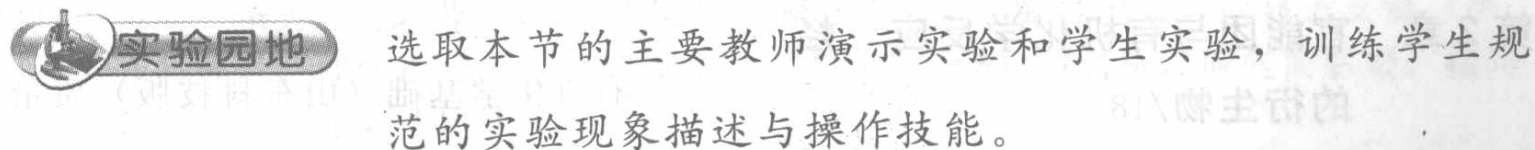 实验园地 选取本节的主要教师演示实验和学生实验，训练学生规
范的实验现象描述与操作技能。